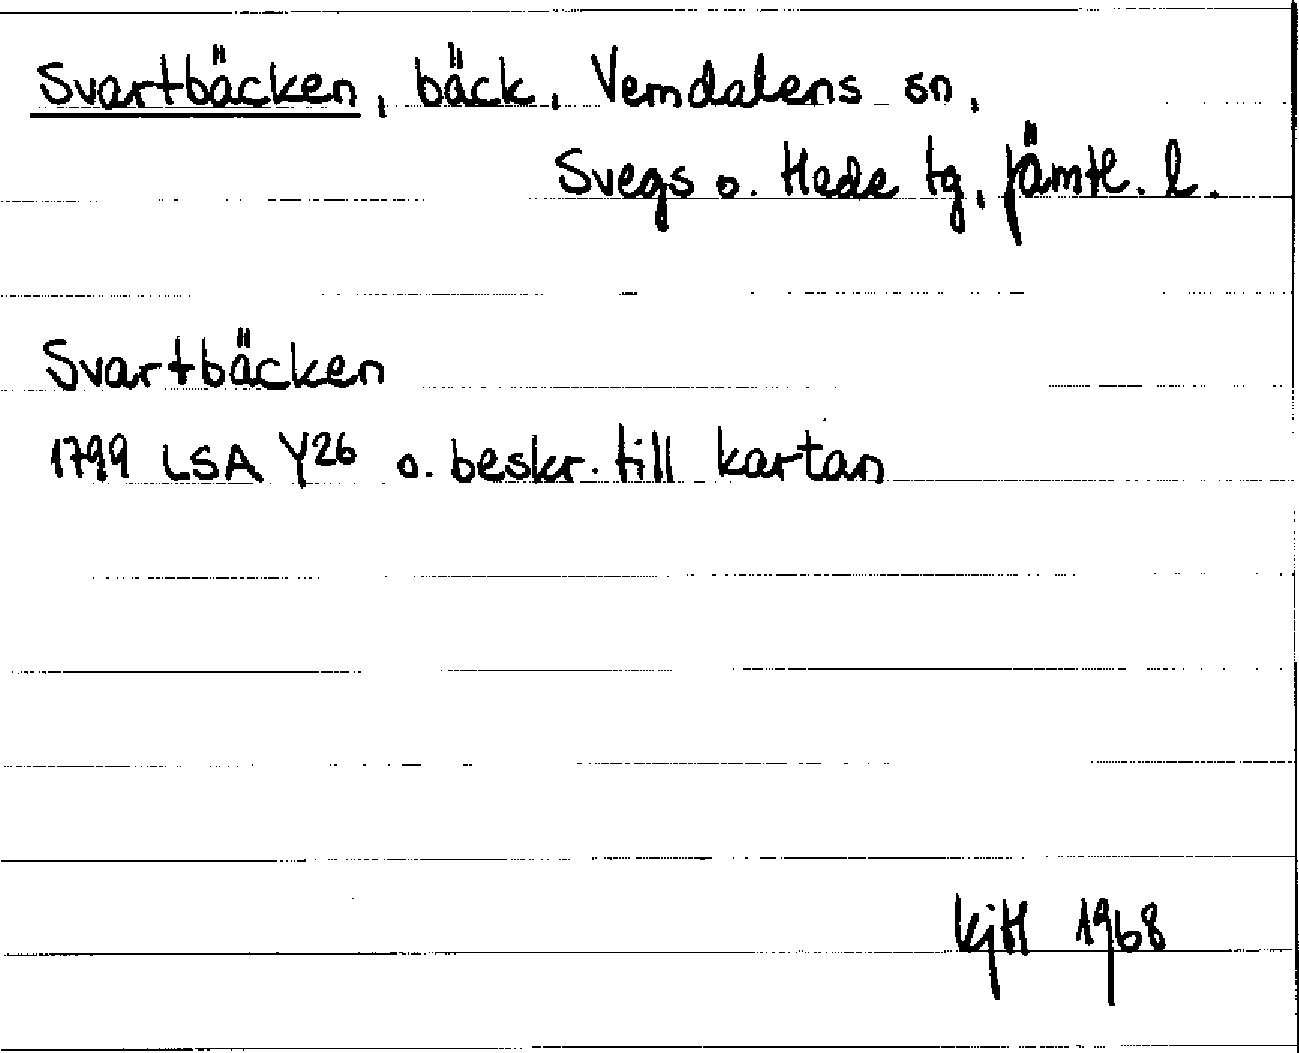 Svartbäcken, bäck, Vemdalens sn,
Svegs o. Hede tg, Jämtl. l.
Svartbäcken
1799 LSA Y26 o. beskr. till kartan
KjH 1968